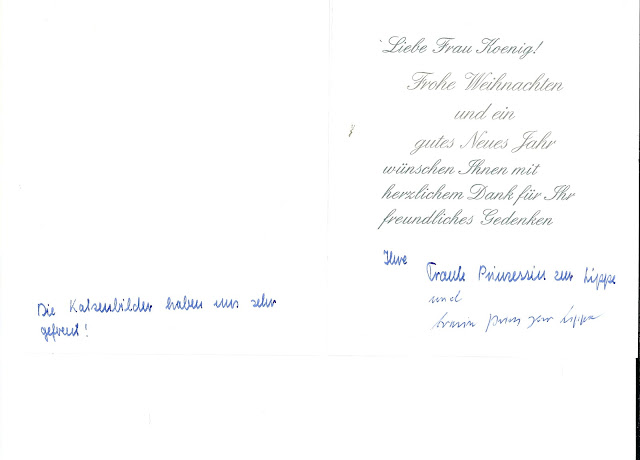 Liebe Frau Koenig!
Frohe Weihnachten
und ein
gutes Neues Jahr
wünschen Ihnen mit
herzlichem Dank für Ihr
freundliches Gedenken
Ihre
Traute Prinzessin zur Lippe
und
Prinz zur Lippe
Die Katzenbilder haben uns sehr
gefreut!